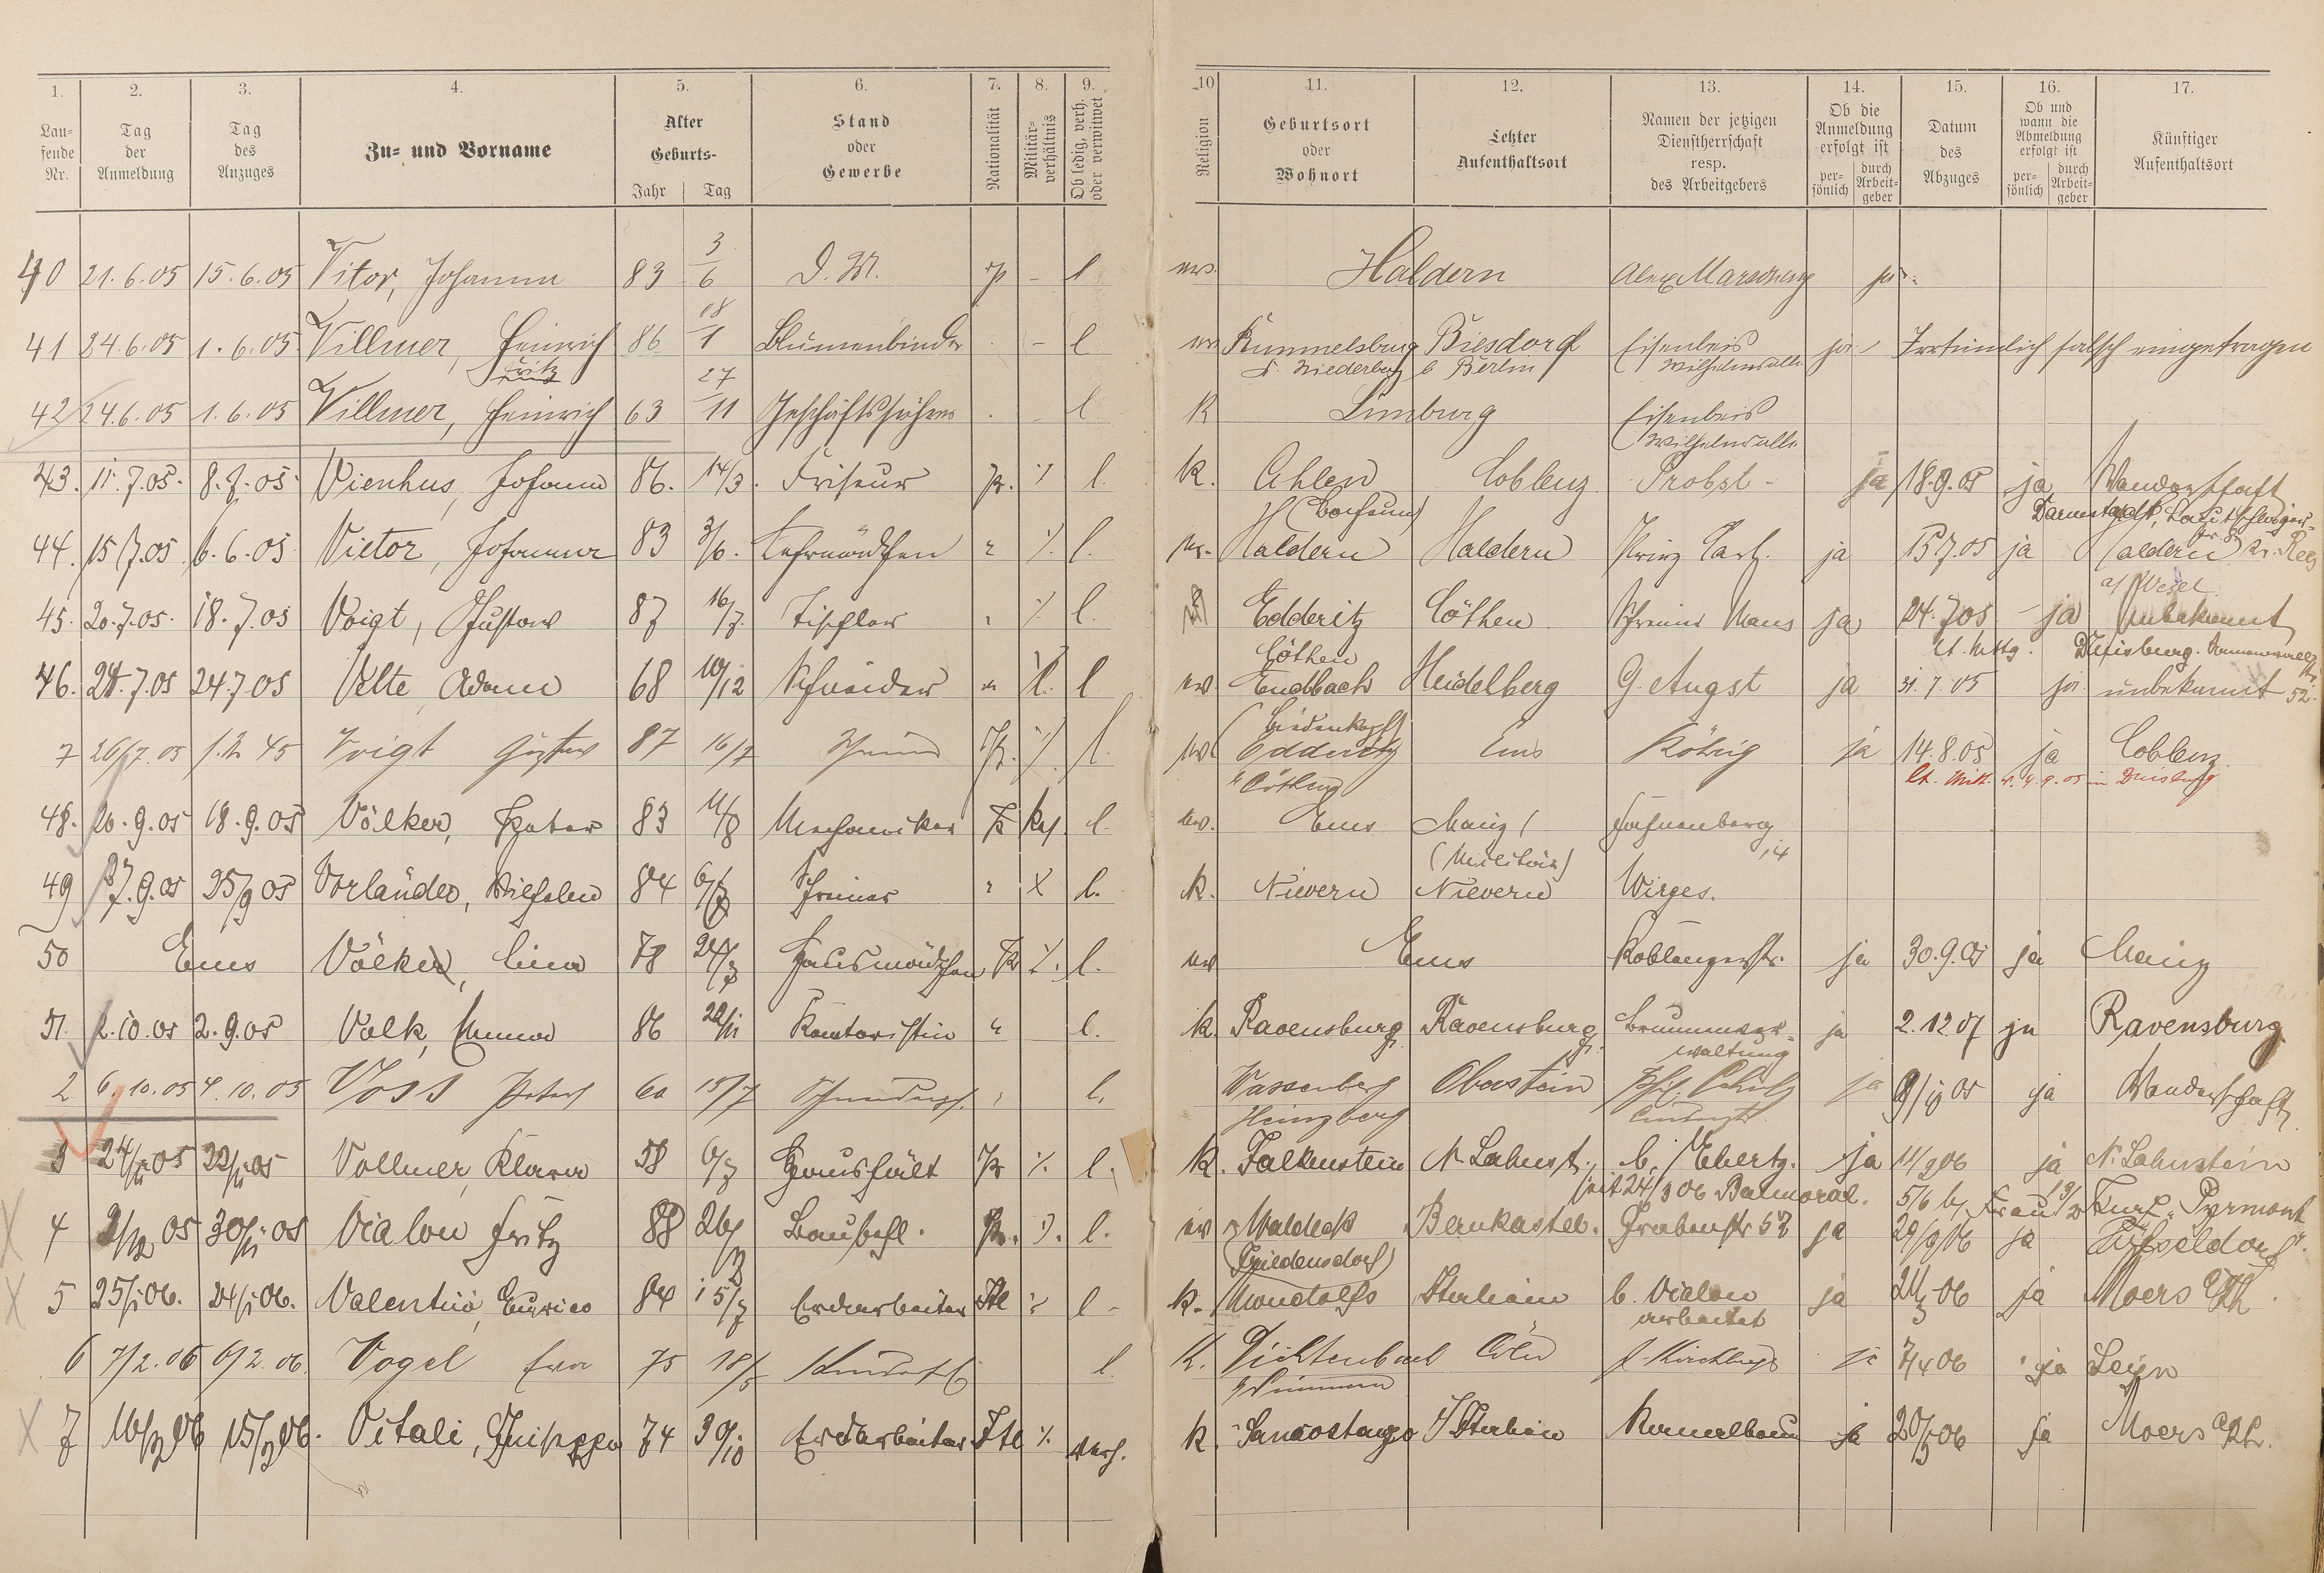 1. 2. 3. 4. 5. 6. 7. 8. 9. 10 11. 12. 13. 14. 15. 16. 17.
Lau-
fende
Nr.
Tag
der
Anmeldung
Tag
des
Anzuges
Zu- und Vorname
Alter
Geburts-
Jahr Tag
Stand
oder
Gewerbe
Nationalität
Militär-
verhältnis
Ob ledig, verh.
oder verwitwet
Religion
Geburtsort
oder
Wohnort
Letzter
Aufenthaltsort
Namen der jetzigen
Dienstherrschaft
resp.
des Arbeitgebers
Ob die
Anmeldung
erfolgt ist
per-
sönlich
durch
Arbeit-
geber
Datum
des
Abzuges
Ob und
wann die
Abmeldung
erfolgt ist
per-
sönlich
durch
Arbeit-
geber
Künftiger
Aufenthaltsort
40 21.6.05 15.6.05 Vitor, Johanna 83 3/6 D. M. p - l ev. Haldern ja
41 24.6.05 1.6.05 Villmer, Heinrich 86 18/1 Blumenbinder - l ev Rummelsburg Biesdorf Eisenbeis ja Irrtümlich falsch eingetragen
Fritz b Berlin Wilhelmsallee
42 24.6.05 1.6.05 Villmer, Heinrich 63 27/11 Geschäftsführer l K Limburg Eisenbeis
Wilhelmsallee
43. 11.7.05. 8.7.05. Vienhus, Johann 86. 14/3. Friseur pr. ⁒ l. k. Ahlen Coblenz Probst - ja 18.9.05 ja Wanderschaft
Darmstadt,
44. 15/7.05 6.6.05 Victor, Johanna 83 3/6. Lehrmädchen " ⁒ l. ev. Haldern Haldern Prinz Carl. ja 15.7.05 ja Haldern Kr. Rees
a/ Wesel
45. 20.7.05. 18.7.05 Voigt, Gustav 87 16/7. Tischler " ⁒ l. Edderitz Cöthen Schreiner Maus ja 24.7.05 - ja unbekannt
Cöthen lt. Mttg. Duisburg.
46. 24.7.05 24.7.05 Velte, Adam 68 10/12 Schneider " ⁒ l ev. Endbach Heidelberg G. Angst ja 31.7.05 ja unbekannt 52.
Biedenkopf
7 26/7.05 Voigt Gustav 87 16/7 Schreiner Pr. ⁒ l. ev. Edderitz Ems Röhrig ja 14.8.05 ja Coblenz.
Cöthen lt. Mitt. v. 4.9.05 in Duisburg
48. 20.9.05 18.9.05 Völker, Peter 83 11/8 Mechaniker Pr l. ev. Ems Mainz
(Militär)
49 27.9.05 25/9 05 Vorländer, Wilhelm 84 6/7 Schreiner " X l. k. Nievern Nievern Wirges.
50 Ems Völker, Lina 78 Hausmädchen Pr ⁒ l. ev Ems Koblenzerstr. ja 30.9.05 ja Mainz
51. 2.10.05 2.9.05 Volk, Emma 86 22/11 Kontoristin " l. k. Ravensburg Ravensburg Brunnenver-
waltung ja 2.12.07 ja Ravensburg
2 6.10.05 4.10.05 Voss Peter 60 15/7 l. Wassenberg Oberstein ja ja Wanderschaft.
Heinsberg
3 24/11 05 22/11 05 Vollmer, Klara 58 6/7 Haushält Pr ⁒ l. k. Falkenstein N. Lahnst. b. Ebertz. ja 11/9 06 ja N. Lahnstein
seit 24/3 06 Balmoral. 5/6
4 2/12 05 30/11 05 Vialon Fritz 88 Baubefl. Pr. ⁒ l. ev Waldeck Bernkastel. Grabenstr 52 ja 29/9/06 ja Düsseldorf.
Friedensdorf
5 25/1 06. 24/1 06. Valentini, Enrico 84 15/7 Erdarbeiter Itl ⁒ l - k. Mondolfo Italien b. Vialon ja 21/3 06 ja Moers a/Rh.
arbeitet
6 7/2.06 6/2.06. Vogel Eva 75 18/5 l. K. Dichtenbach Cöln ja 7/4 06 ja Leyn
7 15/3 06. Vitali, Guiseppe 74 30/10 Erdarbeiter Itl ⁒ verh. k. Sancostanzo Italien ja 20/3 06 ja Moers a/Rh.